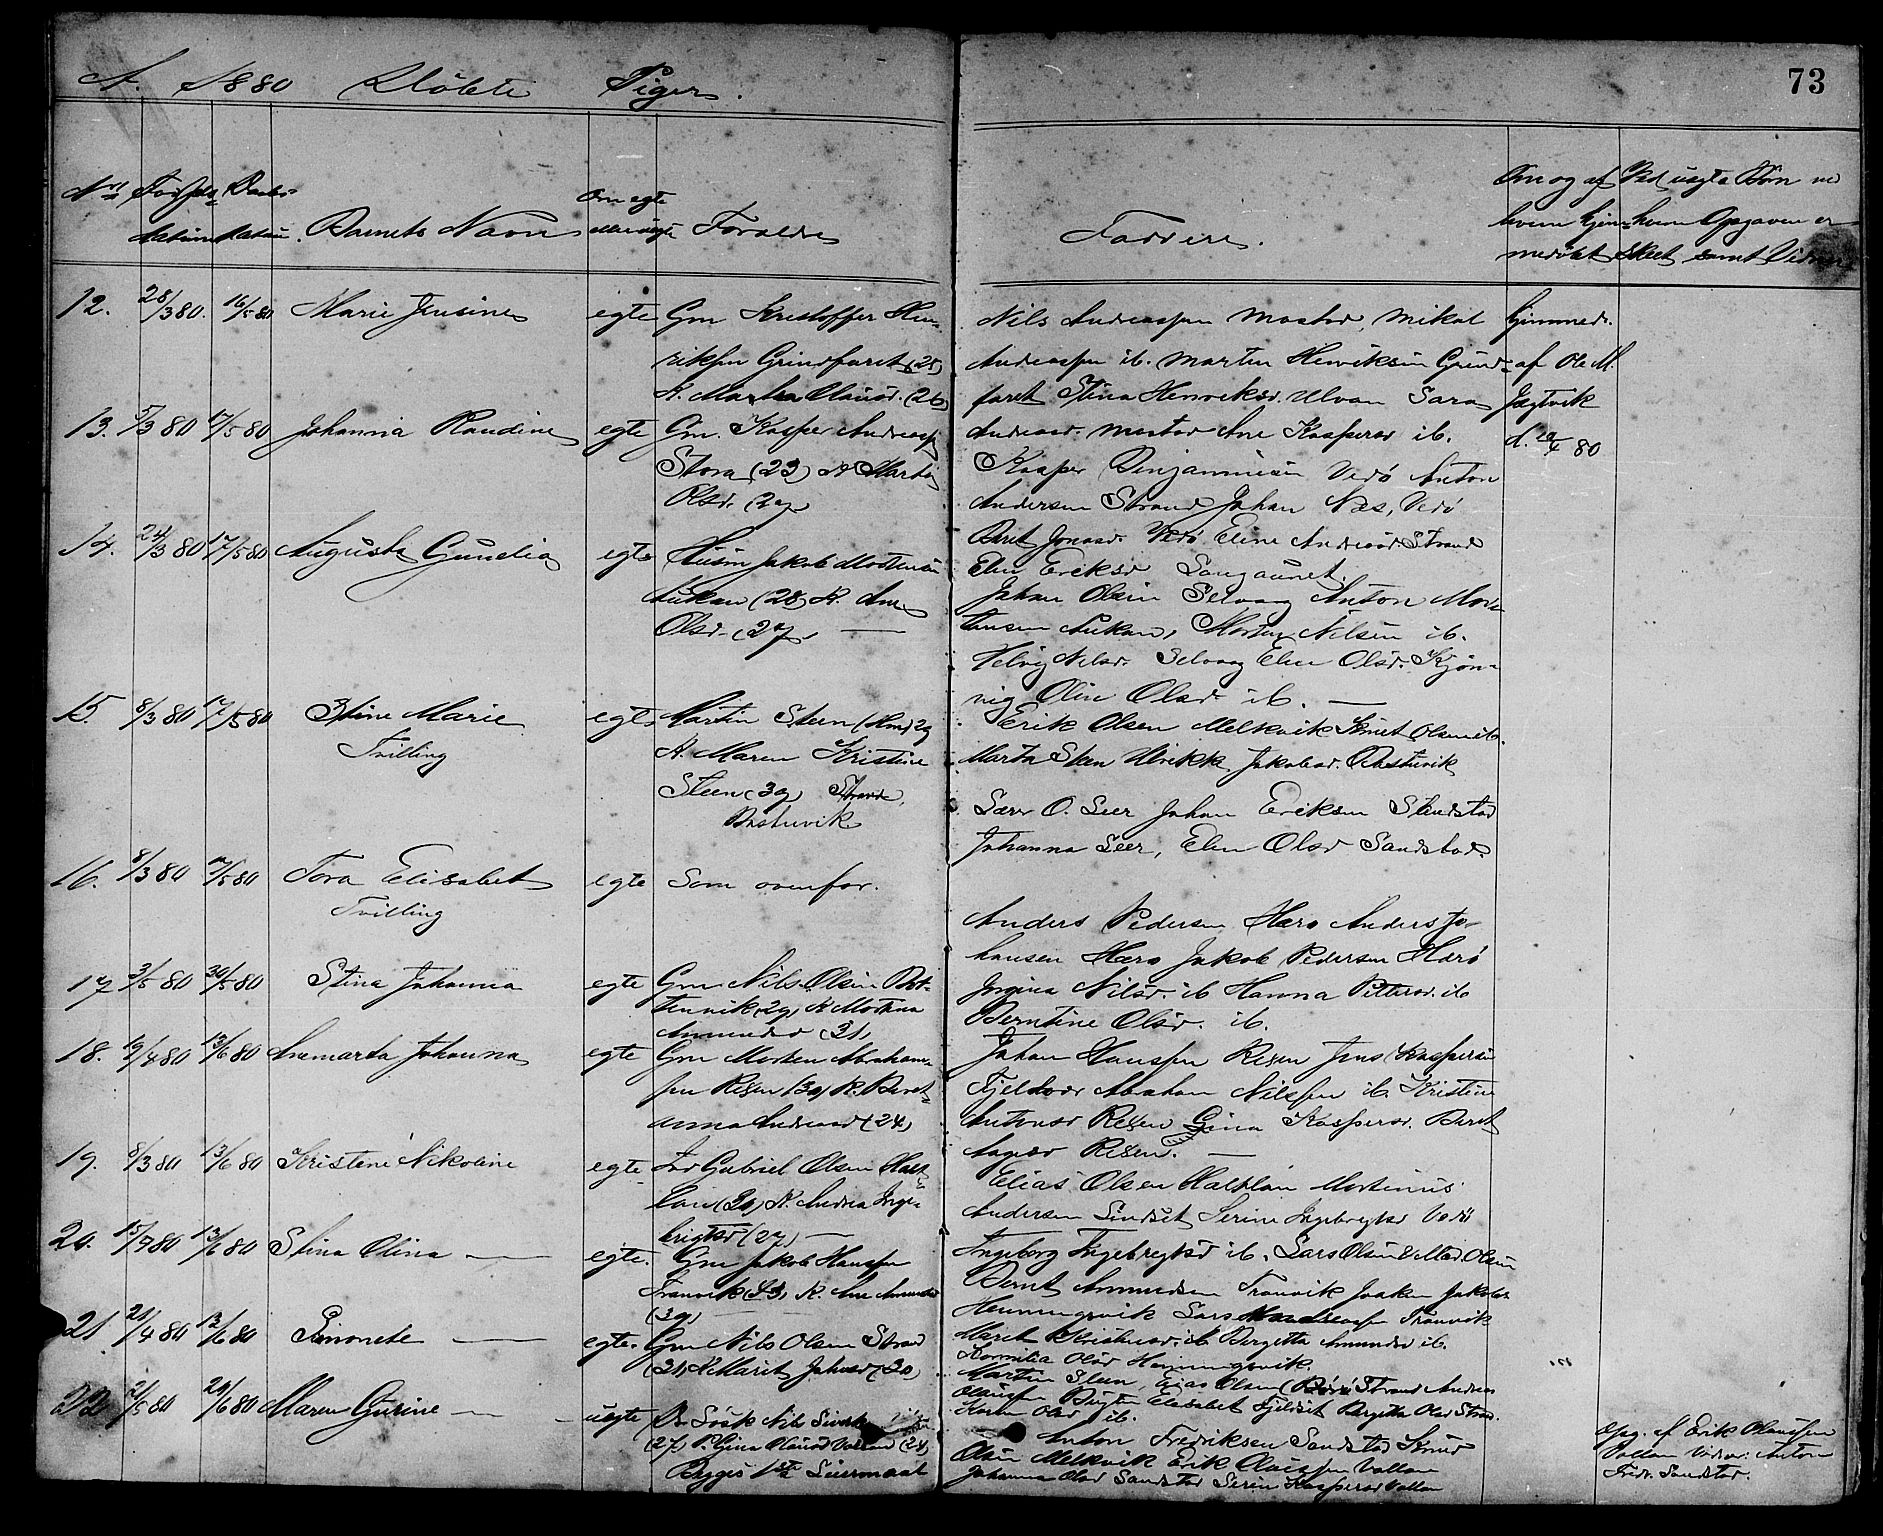 A. 1880 Döbte Piger.
73
Nr Födsels Daabs
datum datum Barnets Navn
Om egte
eller uegte Forældre
Faddere.
Om og af
hvem hjem-
medöbt
Ved uegte Börn
hvem Opgaven er
skeet samt Vidner
12. 28/3 80. 16/5 80 Marie Jensine egte Gm Kristoffer Hen-
riksen Grindfaret (25)
K. Martha Olausd. (26)
Nils Andreassen Mostad, Mikal
Andreassen ib. Martin Henriksen Grind-
faret Stina Henriksd. Ulvan Sara
Andreasd. Mostad Ane Kaspersd ib.
hjemmed.
af Ole M.
Jægtvik
d. 80
13. 5/3 80 17/5 80 Johanna Randine egte Gm. Kasper Andreass
Stora (23) K Marta
Olsd. (27
Kasper Benjaminsen Vedö Anton
Andersen Strand Johan Næs, Vedö
Berit Jonasd. Vedö Eline Andreasd. Strand
Elen Eriksd
14. 24/3 80 17/5 80 Augusta Gunelia egte Husm Jakob Mortensen
Aukan (28) K. Ane
Olsd. (27) —
Johan Olsen Selvaag Anton Mor-
tensen Aukan, Morten Nilsen ib.
Helvig Nilsd. Selvaag Elen Olsd. Kjön-
vig Oline Olsd ib. —
15. 8/3 80 17/5 80 Stine Marie
Tvilling
egte Martin Steen (Hm) 29
K. Maren Kristine
Steen (39) Strand,
Bastuvik
Erik Olsen Melkvik Knut Olsen ib.
Marta Steen Ulrikk. Jakobsd. Bastuvik
16. 8/3 80 17/5 80 Tora Elisabet
Tvilling
egte Som ovenfor.
Lars O. Seer Johan Eriksen Sandstad
Johanna Seer, Elen Olsd Sandstad.
17 3/5 80 30/5 80 Stina Johanna egte Gm Nils Olsen Bot-
tenvik (29) K Mortina
Amundsd (31)
Anders Pedersen Hærö Anders Jo-
hansen Hærö Jakob Pedersen Hærö
Jorgina Nilsd. ib Hanna Pettersd. ib
Berntine Olsd. ib.
18. 19/4 80 13/6 80 Anemarta Johanna egte Gm Morten Abraham-
sen Risen (30) K. Beret-
anna Andreasd (24)
Johan Hanssen Risen Jens Kaspersen
Fjeldvær Abraham Nilssen ib. Kristine
Antonsd Risen Gina Kaspersd. Beret
Risen. —
19. 8/3 80 13/6 80 Kristine Nikoline egte Gabriel Olsen Halt-
lan (30) K. Andrea Inge-
brigtsd (27) —
Elias Olsen Haltlan Mortinus
Andersen Lindset Serine Ingebregtsd Vedö
Ingeborg Ingebregtsd ib. Lars Olsen
20. 13/6 80 Stina Olina — egte. Gm Jakob Hanssen
Tranvik (43) K. Ane Amundsd
(39)
Bernt Amundsen Tranvik Joaken Jakobs
Henningsvik Lars Tranvik
Maret ib Bergitta Amundsd ib.
Kornelia Olsd Henningsvik.
21. 21/4 80 13/6 80 Simonete — egte. Gm Nils Olsen Strand
(31) K Marit Johnsd (30)
Martin Steen, Elias Olsen Strand Andreas
Olaussen Elisabet Fjeldset Bergitta Olsd Strand.
Karen Olsd ib.
22 21/5 80 20/6 80 Maren Gurine — uegte Nils
(27) P. Gina Olausd Vallan (24)
Begges 1ste Leiermaal
Anton Fredriksen Sandstad Knud
Olsen Melkvik Erik Olaussen Vallan
Johanna Olsd Sandstad Serine Kaspersd Vallan
Opg. af Erik Olaussen
Vallan Vidner: Anton
Fredr. Sandstad.